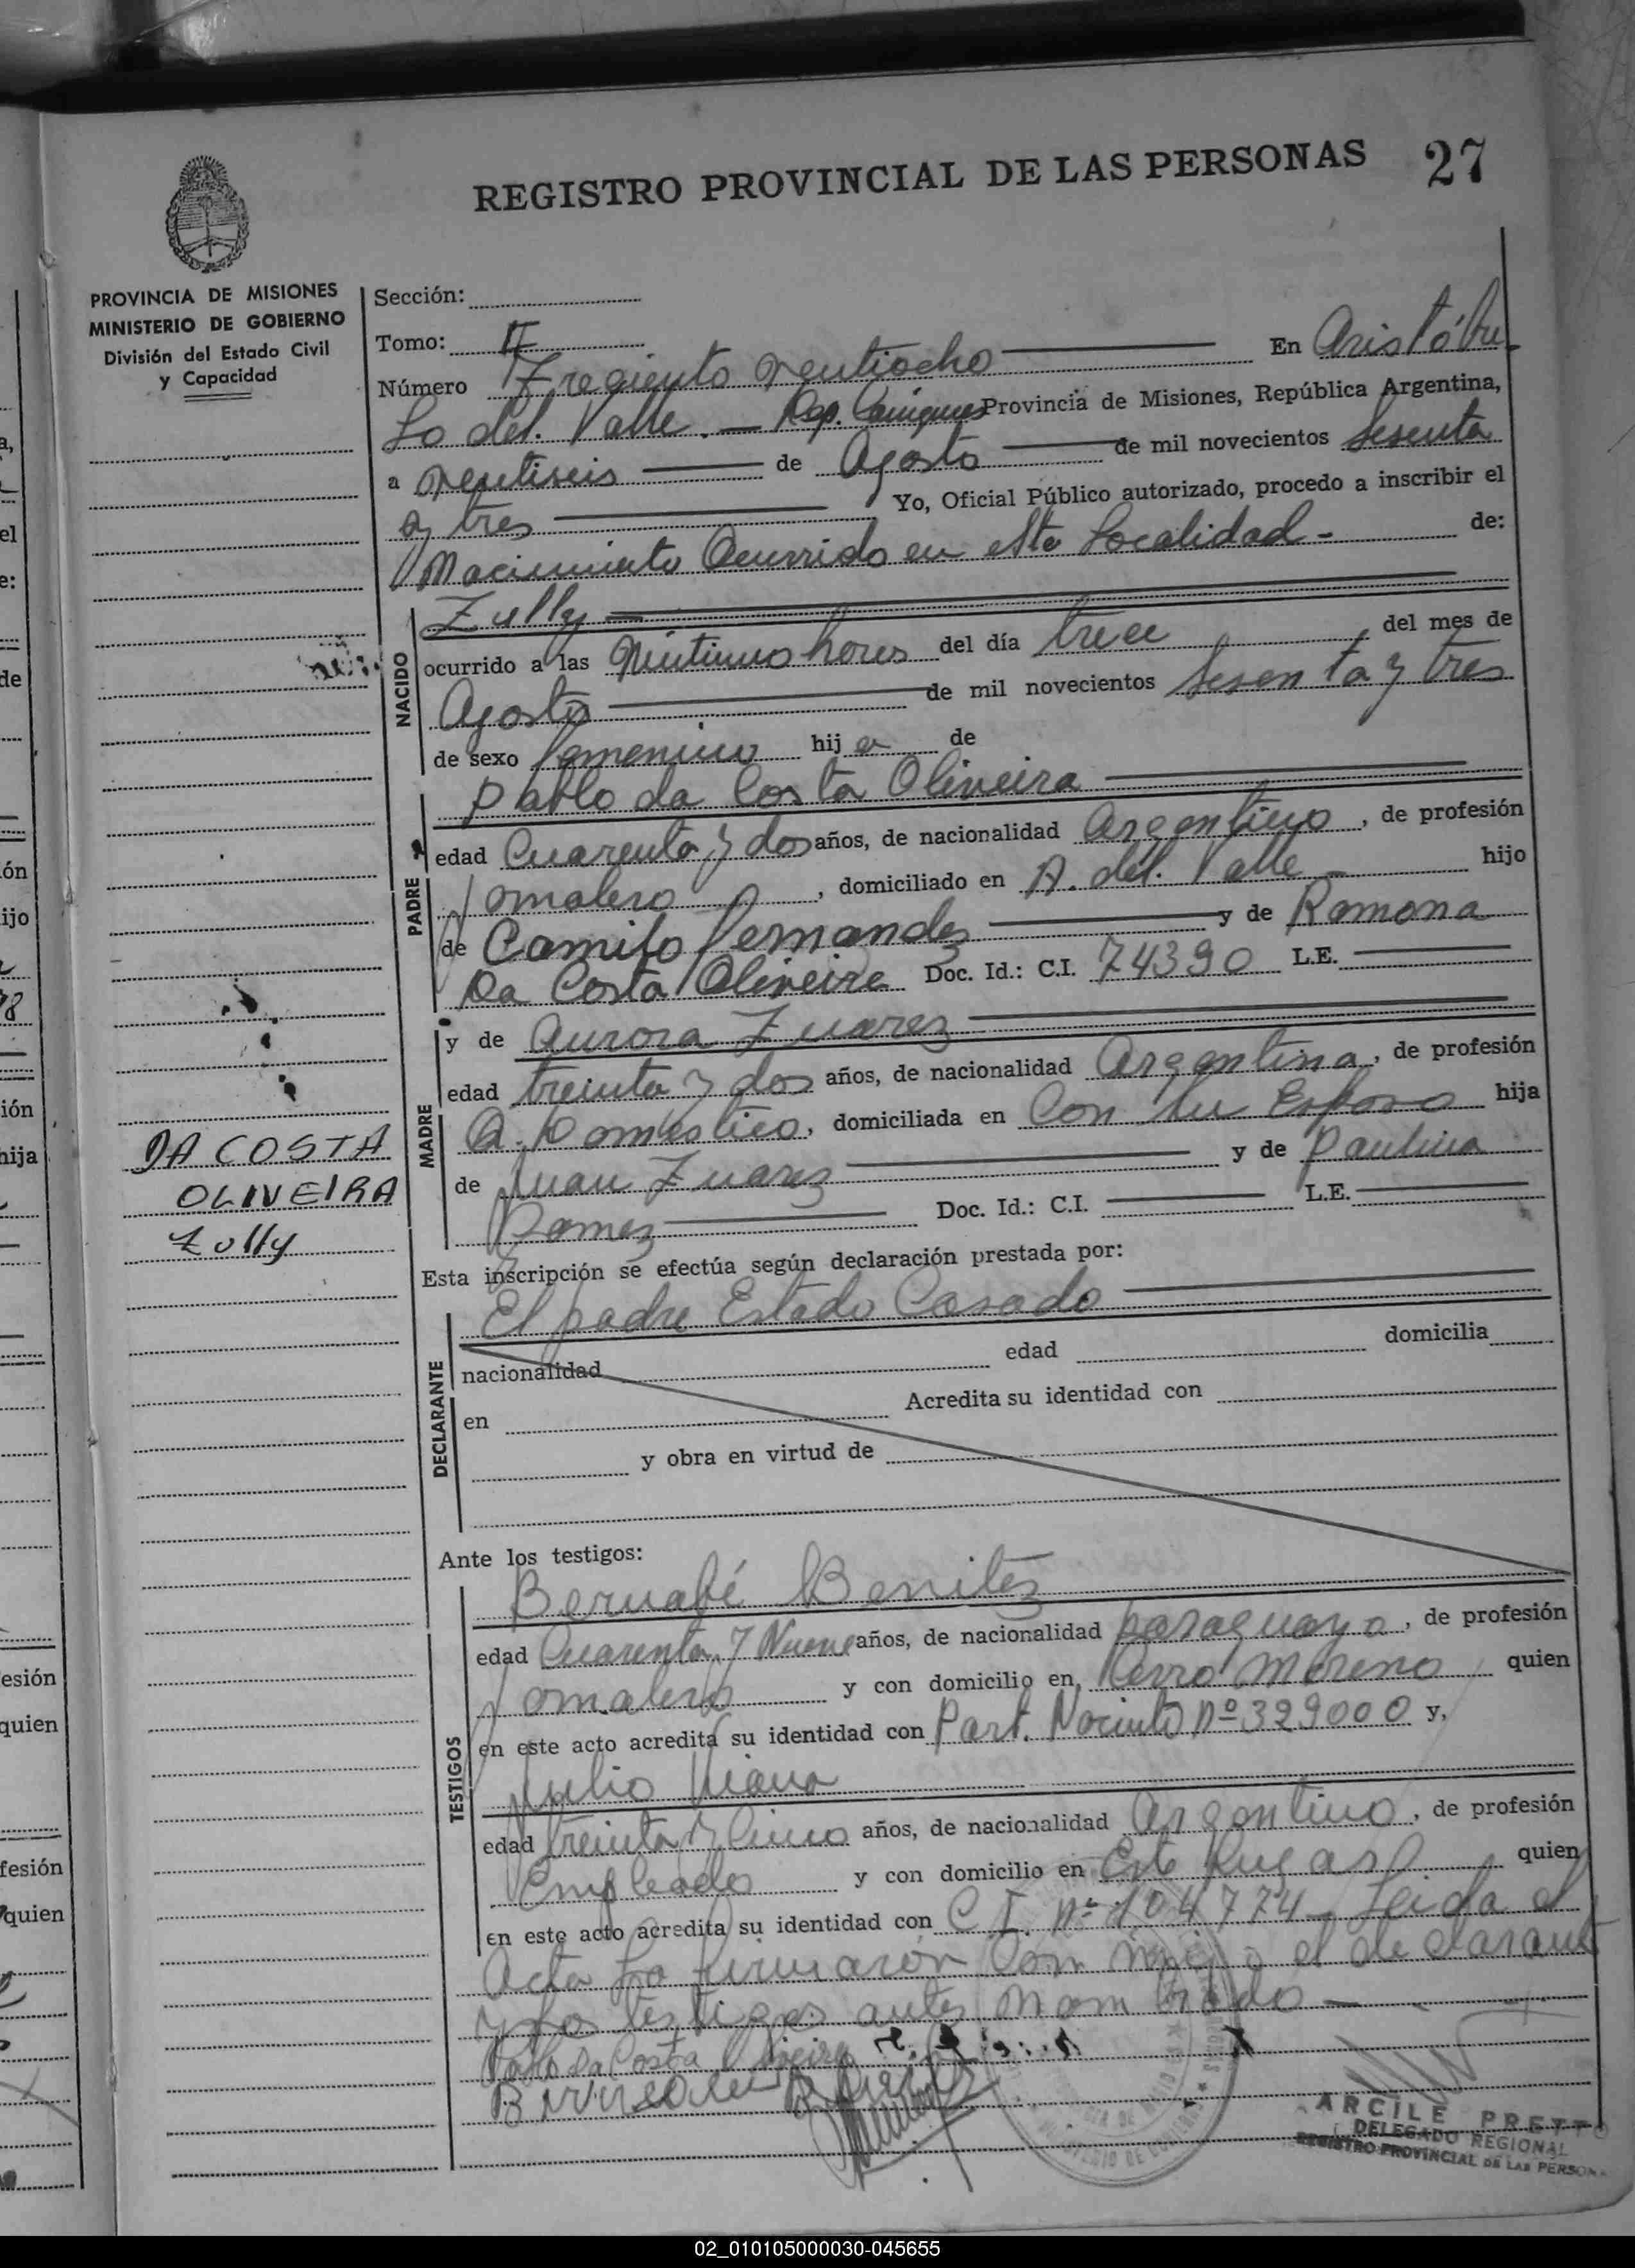 REGISTRO PROVINCIAL DE LAS PERSONAS 27
PROVINCIA DE MISIONES
MINISTERIO DE GOBIERNO
División del Estado Civil
y Capacidad
Sección:
Tomo: II
Número Tregiento ventiocho En Aristóbu
lo del. Valle. — Dep. Cainguas Provincia de Misiones, República Argentina,
a ventiseis de Agosto de mil novecientos Sesenta
y tres Yo, Oficial Público autorizado, procedo a inscribir el
Nacimiento Ocurrido en esta Localidad - de:
NACIDO
Zully
ocurrido a las Vintiuno hores del día trece del mes de
Agosto de mil novecientos Sesenta y tres
de sexo femenino hij a de
PADRE
Pablo da Costa Oliveira
edad Cuarenta y dos años, de nacionalidad Argentino, de profesión
Jornalero, domiciliado en A. del. Valle - hijo
de Camilo Fernandez y de Ramona
Da Costa Oliveira Doc. Id.: C.I. 74390 L.E.
MADRE
y de Aurora Zuarez
edad treinta y dos años, de nacionalidad Argentina, de profesión
Q. Domestico, domiciliada en Con su Esposo hija
de Juan Zuarez y de Paulina
Gomez Doc. Id.: C.I. L.E.
DA COSTA
OLIVEIRA
Zully
Esta inscripción se efectúa según declaración prestada por:
DECLARANTE
El padre Estado Casado
nacionalidad edad domicilia
en Acredita su identidad con
y obra en virtud de
Ante los testigos:
TESTIGOS
Bernabé Benitez
edad Cuarenta y Nueve años, de nacionalidad paraguayo, de profesión
Jornalero y con domicilio en Cerro Moreno quien
en este acto acredita su identidad con Part. Nacimto nº 329000 y,
Julio Viana
edad treinta y cinco años, de nacionalidad Argentino, de profesión
Empleado y con domicilio en Este Lugar quien
en este acto acredita su identidad con C I. nº 104774 - Leida el
Acta la firmaron Com migo el declarant
y los testigos antes nombrado -
Pablo Da Costa Oliveira
ARCILE PRETTO
DELEGADO REGIONAL
REGISTRO PROVINCIAL DE LAS PERSON
02_010105000030-045655